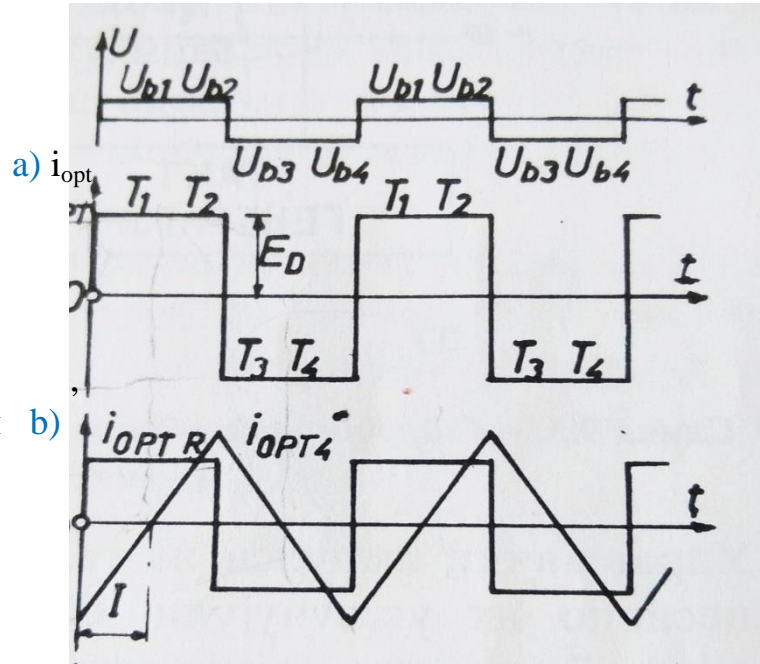 U
U_b1 U_b2 U_b1 U_b2 t
U_b3 U_b4 U_b3 U_b4
a) i_opt
T_1 T_2 T_1 T_2
E_D
I
T_3 T_4 T_3 T_4
,
b)
i_OPT R i_OPT4 t
I